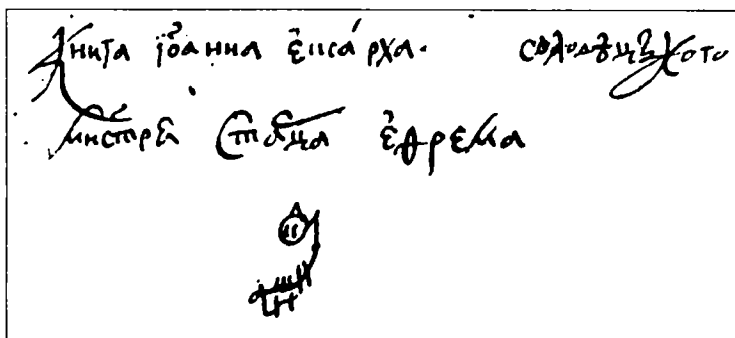 Книга їоанна ексарха. соловецкого
мнстрѧ старца ефрема